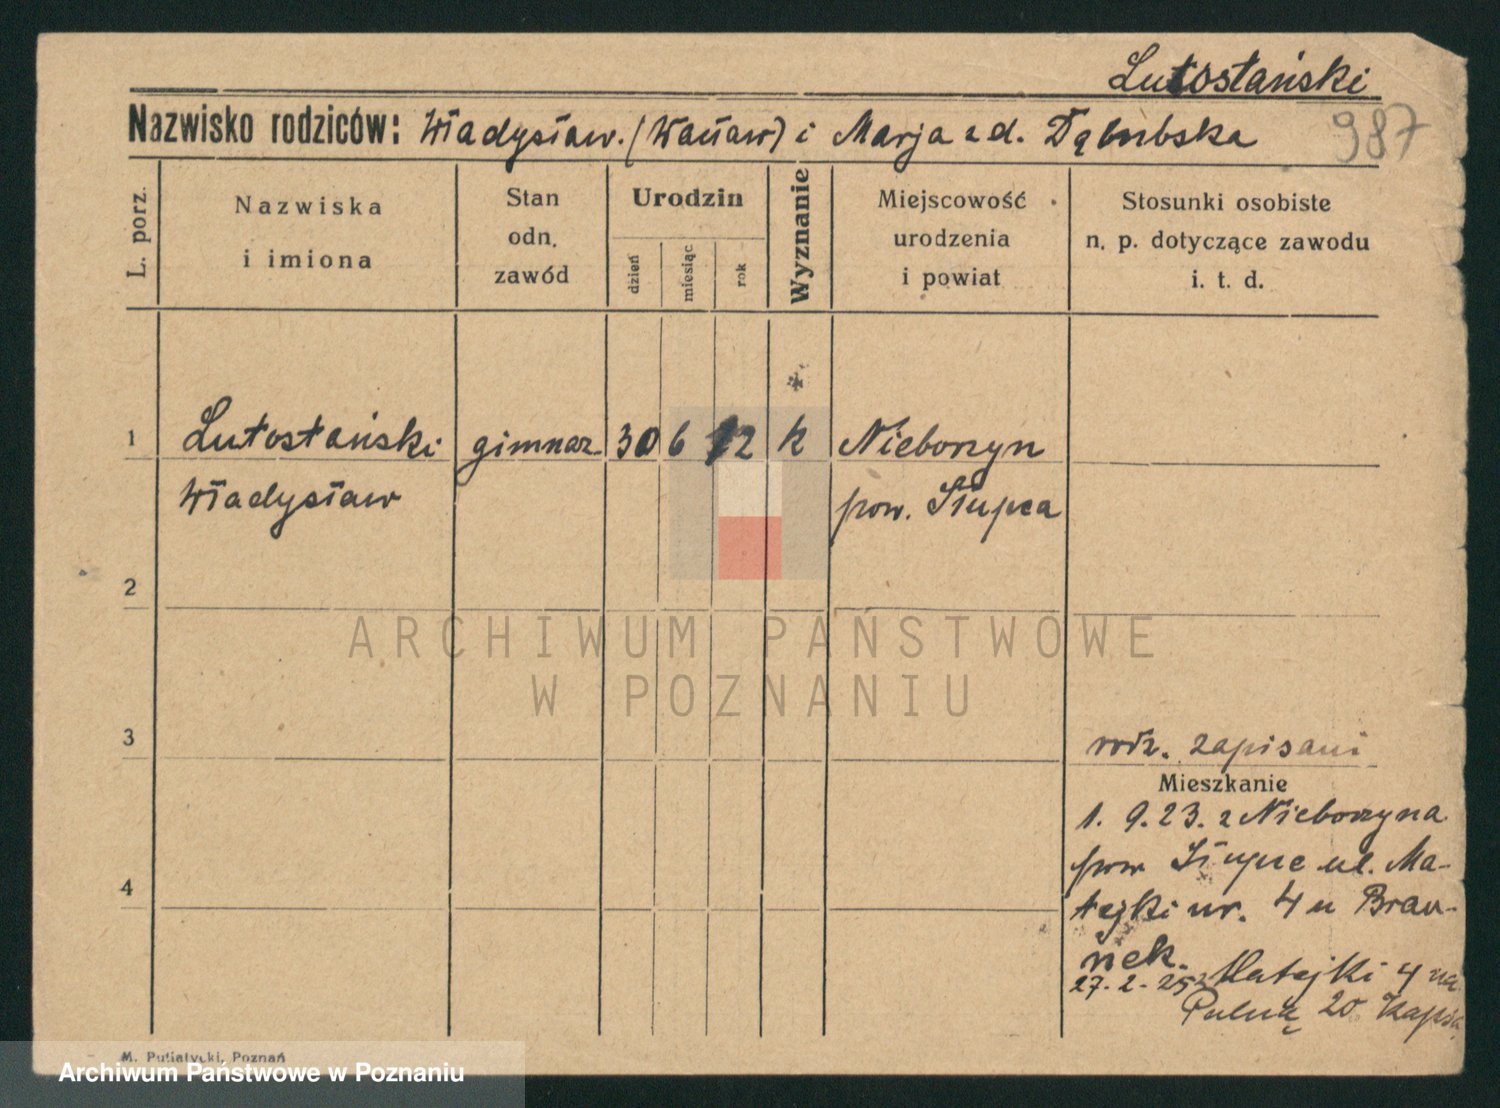 Lutostański
987
Nazwisko rodziców: Władysław. (Wacław) i Marja z d. Dąbubska
L. porz.
Nazwiska
i imiona
Stan
odn.
zawód
Urodzin
dzień
miesiąc
rok
Wyznanie
Miejscowość
urodzenia
i powiat
Stosunki osobiste
n. p. dotyczące zawodu
i. t. d.
1
Lutostański gimnaz. 30 6 12 k Nieborzyn
Władysław pow. Słupca
2
ARCHIWUM PAŃSTWOWE
W POZNANIU
3
rodz. zapisani
Mieszkanie
1. 9. 23. z Nieborzyna
pow Słupce ul. Ma-
4
tejki nr. 4 u Brau-
nek.
27-2-25 z Matejki 4 na
20
M. Putiatycki, Poznań
Archiwum Państwowe w Poznaniu